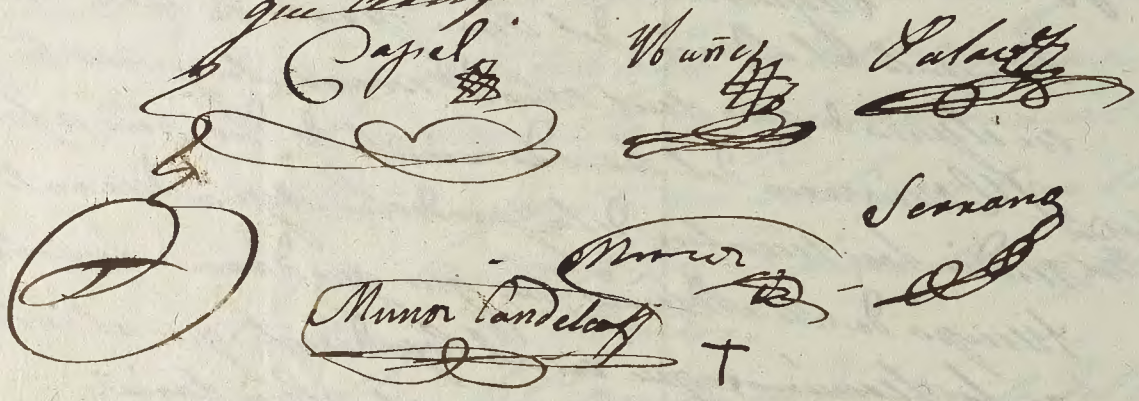 que
Capel Ybañez Palacios
Serrano
Munor
Munor Candelas